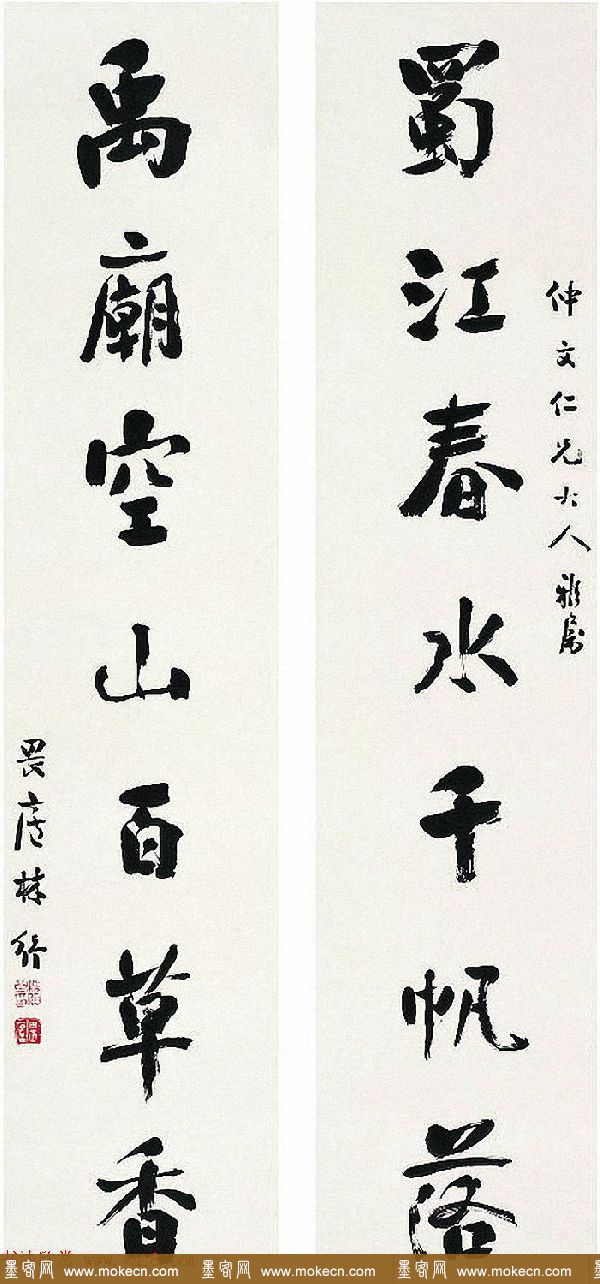 仲文仁兄大人雅属
蜀江春水千帆落
禹廟空山百草香
畏廬林紓
墨客网 www.mokecn.com 墨客网 www.mokecn.com 墨客网 www.mokecn.com